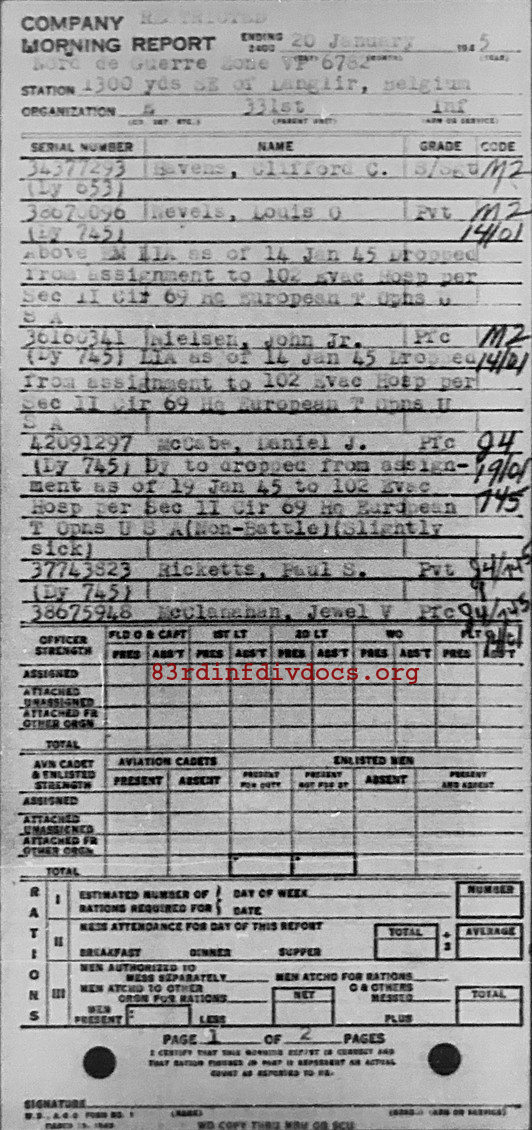 COMPANY RESTRICTED
MORNING REPORT ENDING 2400 20 January 1945
Nord de Guerre Zone VP 6782
STATION 1300 yds SE of Langlir, Belgium
ORGANIZATION 331st Inf
(CO. DET. ETC.) (PARENT UNIT) (ARM OR SERVICE)
SERIAL NUMBER NAME GRADE CODE
34377293 Havens, Clifford C. S/Sgt M2
(Dy 653)
38670096 Nevels, Louis O Pvt M2
(Dy 745) 14/01
Above EM LIA as of 14 Jan 45 Dropped
from assignment to 102 Evac Hosp per
Sec II Cir 69 Hq European T Opns U
S A
36160341 Nielsen, John Jr. Pfc M2
(Dy 745) LIA as of 14 Jan 45 Dropped 14/01
from assignment to 102 Evac Hosp per
Sec II Cir 69 Hq European T Opns U
S A
42091297 McCabe, Daniel J. Pfc 94
(Dy 745) Dy to dropped from assign- 19/01
ment as of 19 Jan 45 to 102 Evac 745
Hosp per Sec II Cir 69 Hq European
T Opns U S A(Non-Battle)(Slightly
sick)
37743823 Ricketts, Paul S. Pvt 94/745
(Dy 745)
38675948 McClanahan, Jewel V Pfc 94/745
OFFICER STRENGTH FLD O & CAPT 1ST LT 2D LT WO FLT
PRES ABS'T PRES ABS'T PRES ABS'T PRES ABS'T PRES ABS'T
ASSIGNED
83rdinfdivdocs.org
ATTACHED UNASSIGNED
ATTACHED FR OTHER ORGN
TOTAL
AVN CADET & ENLISTED STRENGTH AVIATION CADETS ENLISTED MEN
PRESENT ABSENT PRESENT FOR DUTY PRESENT NOT FOR DY ABSENT PRESENT AND ABSENT
ASSIGNED
ATTACHED UNASSIGNED
ATTACHED FR OTHER ORGN
TOTAL
RATIONS
I ESTIMATED NUMBER OF RATIONS REQUIRED FOR DAY OF WEEK DATE NUMBER
II MESS ATTENDANCE FOR DAY OF THIS REPORT TOTAL ÷ 3 AVERAGE
BREAKFAST DINNER SUPPER
III MEN AUTHORIZED TO MESS SEPARATELY MEN ATCHD FOR RATIONS
MEN ATCHD TO OTHER ORGN FOR RATIONS NET O & OTHERS MESSED TOTAL
MEN PRESENT LESS PLUS
PAGE 1 OF 2 PAGES
I CERTIFY THAT THIS MORNING REPORT IS CORRECT AND
THAT RATION FIGURES IN PART III REPRESENT AN ACTUAL
COUNT AS REPORTED TO ME.
SIGNATURE
W.D., A.G.O. FORM NO. 1 (NAME) (GRADE) (ARM OR SERVICE)
WD COPY THRU MRU OR SCU